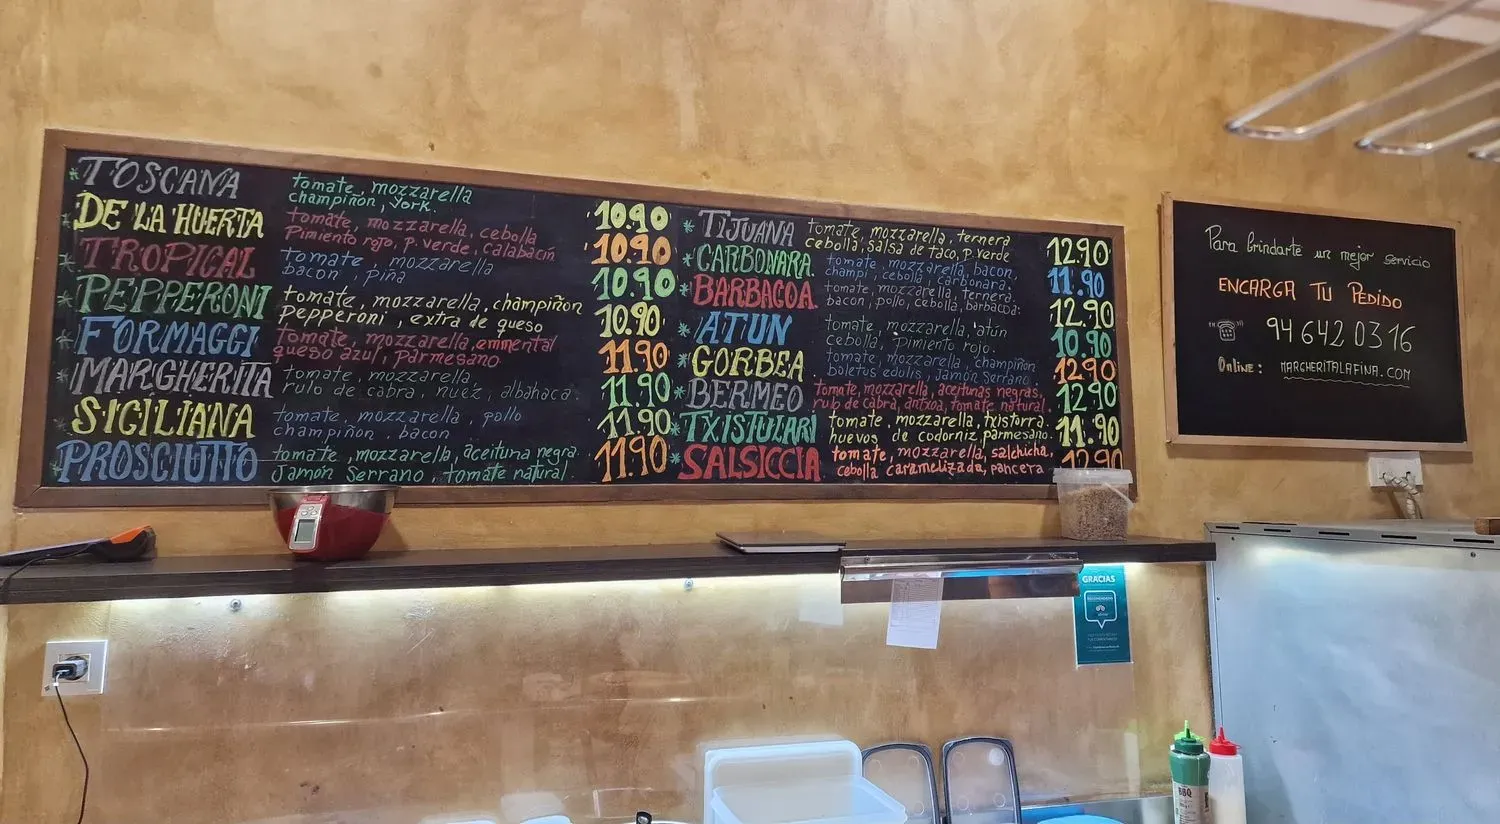 TOSCANA
tomate, mozzarella
champiñon, york.
10.90
DE LA HUERTA
tomate, mozzarella, cebolla
Pimiento rojo, p. verde, calabacín
10.90
TROPICAL
tomate, mozzarella
bacon, piña
10.90
PEPPERONI
tomate, mozzarella, champiñon
pepperoni, extra de queso
10.90
FORMAGGI
tomate, mozzarella, emmental
queso azul, parmesano
11.90
MARGHERITA
tomate, mozzarella,
rulo de cabra, nuez, albahaca.
11.90
SICILIANA
tomate, mozzarella, pollo
champiñon, bacon
11.90
PROSCIUTTO
tomate, mozzarella, aceituna negra.
Jamón Serrano, tomate natural.
11.90
TIJUANA
tomate, mozzarella, ternera
cebolla, salsa de taco, p. verde
12.90
CARBONARA
tomate, mozzarella, bacon,
champi, cebolla, carbonara.
11.90
BARBACOA
tomate, mozzarella, ternera
bacon, pollo, cebolla, barbacoa.
12.90
ATUN
tomate, mozzarella, atún
cebolla, Pimiento rojo.
10.90
GORBEA
tomate, mozzarella, champiñon
boletus edulis, Jamón Serrano.
12.90
BERMEO
tomate, mozzarella, aceitunas negras,
rulo de cabra, antxoa, tomate natural.
12.90
TXISTULARI
tomate, mozzarella, txistorra.
huevos de codorniz, parmesano.
11.90
SALSICCIA
tomate, mozzarella, salchicha,
cebolla caramelizada, pancera
12.90
Para brindarte un mejor servicio
ENCARGA TU PEDIDO
94 642 03 16
Online: MARGHERITALAFINA.COM
GRACIAS
BBQ